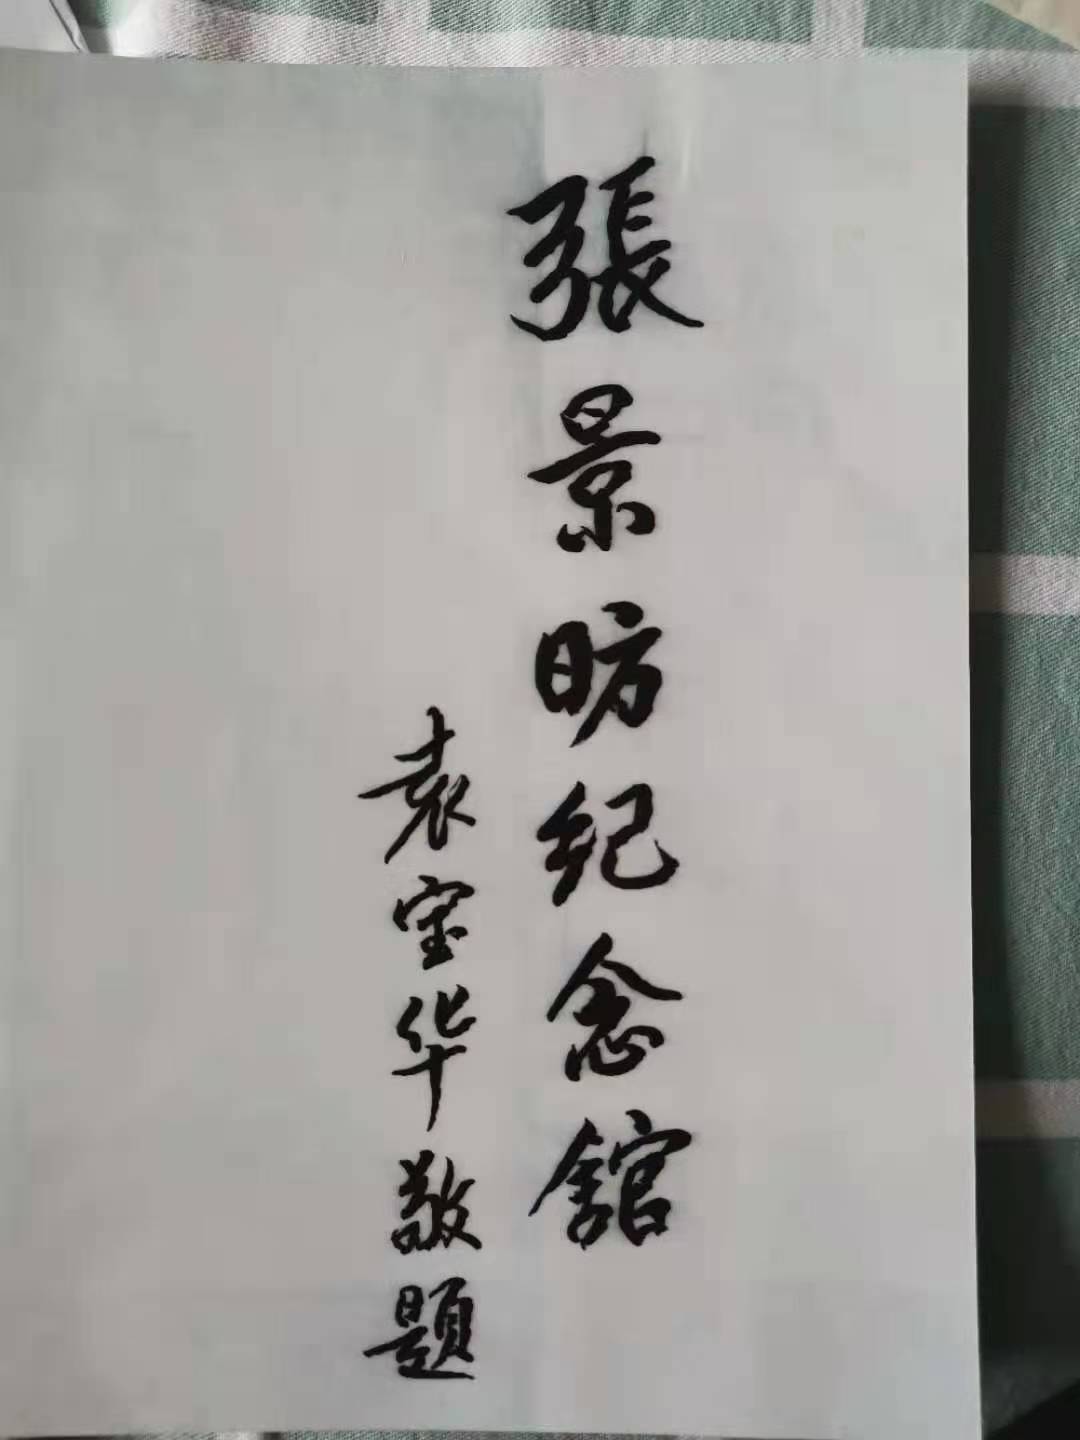 張景昉纪念舘
袁宝华敬題